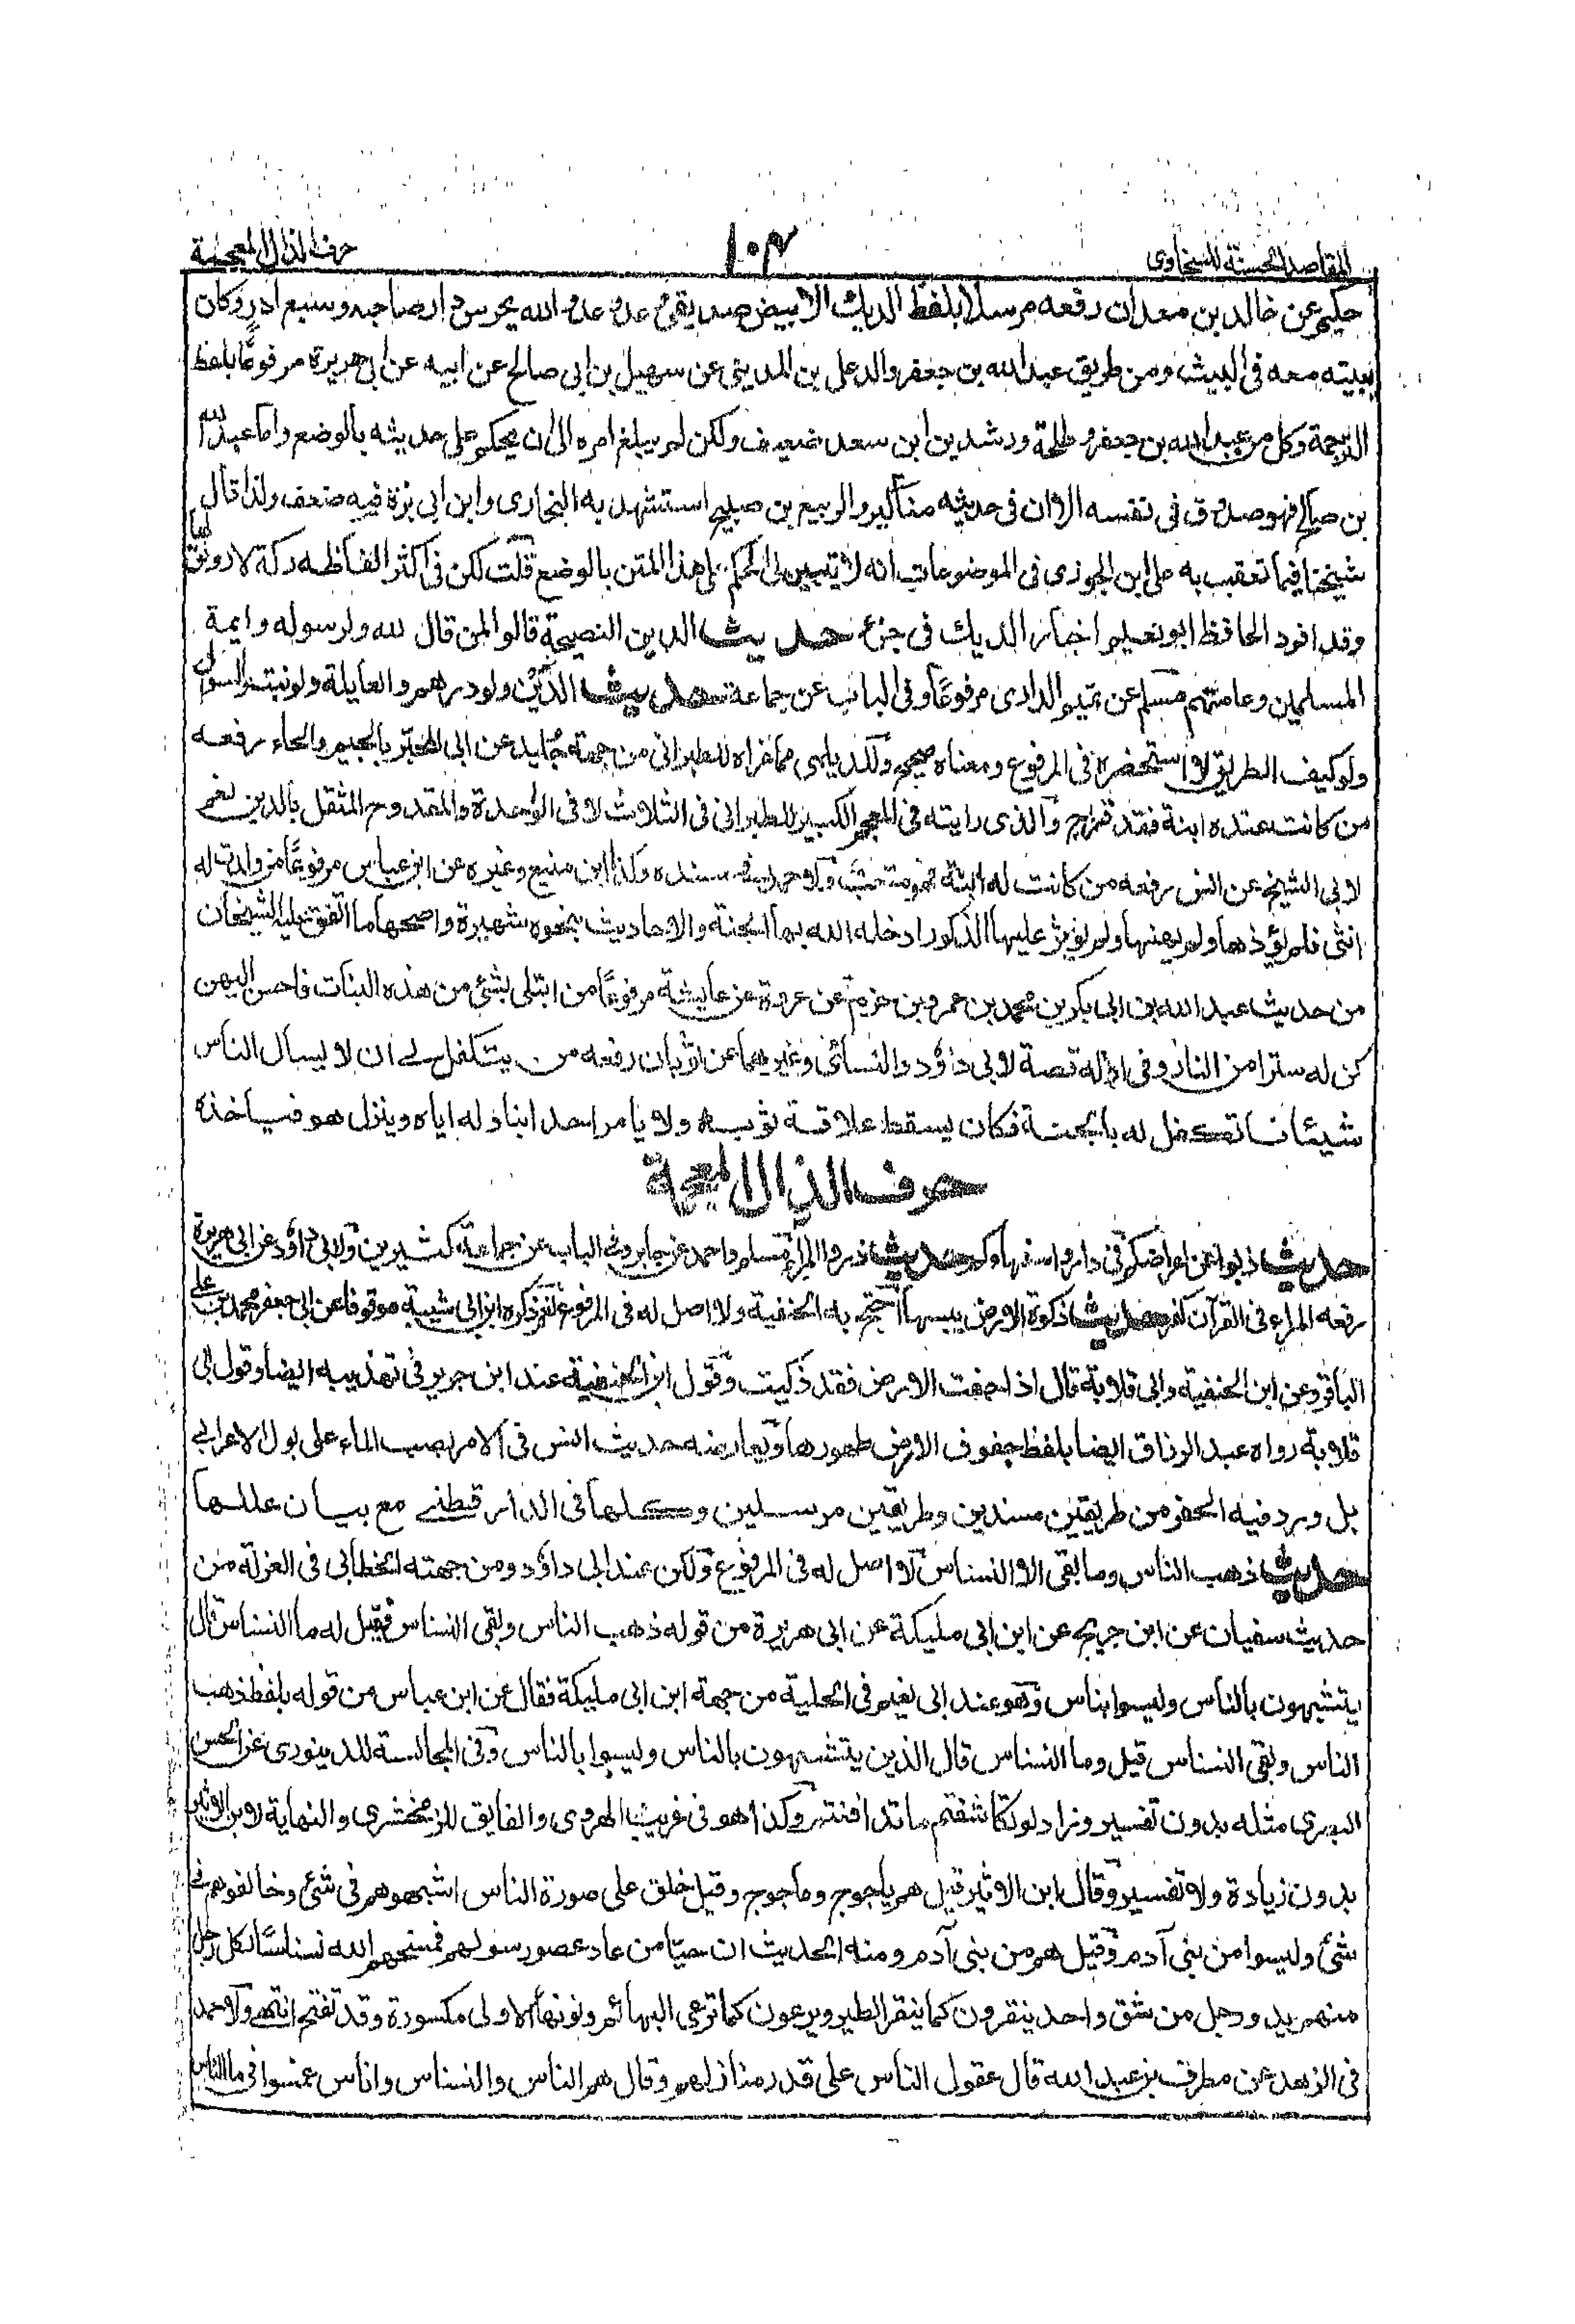 المقاصد الحسنة للسخاوى ١٠٤ حرف الذال المعجمة
حكيم عن خالد بن معدان رفعه مرسلا بلفظ الديك الابيض صديقى وعدو عدو الله يحرس دار صاحبه وسبع ادور وكان
يبيته معه فى البيت ومن طريق عبد الله بن جعفر والد على بن المدينى عن سهيل بن ابى صالح عن ابيه عن ابى هريرة مرفوعًا بلفظ
الترجمة وكل من عبد الله بن جعفر وطلحة ورشدين ابن سعد ضعيف ولكن لم يبلغ امره الى ان يحكم على حديثه بالوضع واما عبد الله
بن صالح فهو صدوق فى نفسه الا ان فى حديثه مناكير والربيع بن صبيح استشهد به البخارى وابن ابى بزة فيه ضعف ولذا قال
شيخنا فيما تعقب به على ابن الجوزى فى الموضوعات انه لا تبين لى الحكم على هذا المتن بالوضع قلت لكن فى اكثر الفاظه ركة لا رونق لها
وقد افرد الحافظ ابو نعيم اخبار الديك فى جزء حديث الدين النصيحة قالوا لمن قال لله ولرسوله وايمة
المسلمين وعامتهم مسلم عن تميم الدارى مرفوعًا وفى الباب عن جماعة حديث الدَّيْن ولو درهم والعايلة ولو بنت والسؤال
ولو كيف الطريق لا استحضره فى المرفوع ومعناه صحيح وللديلمى مما عزاه للطبرانى من جهة مجاهد عن ابى المحبّر بالجيم والحاء رفعه
من كانت عنده ابنة فقد قدح والذى رايته فى المعجم الكبير للطبرانى فى الثلاث لا فى الواحدة والمقدوح المثقل بالدين نعم
لابى الشيخ عن انس رفعه من كانت له ابنة فهو متعب ولاحمد فى مسنده وكذا ابن منيع وغيره عن ابن عباس مرفوعًا من ولدت له
انثى فلم يؤذها ولم يهنها ولم يؤثر عليها الذكور ادخله الله بها الجنة والاحاديث بنحوه شهيرة واصحها ما اتفق عليه الشيخان
من حديث عبد الله بن ابى بكر بن محمد بن عمرو بن حزم عن عروة عن عايشة مرفوعًا من ابتلى بشئ من هذه البنات فاحسن اليهن
كن له سترا من النار وفى اوله قصة لابى داؤد والنسائى وغيرهما عن ثوبان رفعه من يتكفل لى ان لا يسال الناس
شيئا فاتكفل له بالجنة فكان يسقط علاقة ثوبه ولا يامر احد ابناوله اياه وينزل هو فياخذه
حرف الذال المعجمة
حديث ذبوا عن اعراضكم فى داروا سفهاوكم حديث ذروا المراء مسلم واحمد عن جابر وفى الباب عن جماعة كثيرين ولابى داؤد عن ابى هريرة
رفعه المراء فى القرآن كفر حديث ذكوة الارض يبسها احتج به الحنفية ولا اصل له فى المرفوع نعم ذكره ابن ابى شيبة موقوفا عن ابى جعفر محمد بن على
الباقر وعن ابن الحنفية وابى قلابة قال اذا جفت الارض فقد ذكيت وقول ابن الحنفية عند ابن جرير فى تهذيبه ايضا وقول ابى
قلابة رواه عبد الرزاق ايضا بلفظ جفوف الارض طهورها ويعارضه حديث انس فى الامر بصب الماء على بول الاعرابى
بل ورد فيه الحفر من طريقين مسندين وطريقين مرسلين وكلها فى الدارقطنى مع بيان عللها
حديث ذهب الناس وما بقى الا النسناس لا اصل له فى المرفوع ولكن عند ابى داؤد ومن جهته الخطابى فى العزلة من
حديث سفيان عن ابن جريج عن ابن ابى مليكة عن ابى هريرة من قوله ذهب الناس وبقى النسناس فقيل له ما النسناس قال
يتشبهون بالناس وليسوا بناس وهو عند ابى نعيم فى الحلية من جهة ابن ابى مليكة فقال عن ابن عباس من قوله بلفظ ذهب
الناس وبقى النسناس قيل وما النسناس قال الذين يتشبهون بالناس وليسوا بالناس وفى المجالسة للدينورى عن الحسن
البصرى مثله بدون تفسير وزاد لو تكاشفتم ما تدافنتم وكذا هو فى غريب الهروى والفايق للزمخشرى والنهاية لابن الاثير
بدون زيادة ولا تفسير وقال ابن الاثير قيل هم ياجوج وماجوج وقيل خلق على صورة الناس اشبهوهم فى شئ وخالفوهم فى
شئ وليسوا من بنى آدم وقيل هم من بنى آدم ومنه الحديث ان حيّا من عاد عصو رسولهم فمسخهم الله نسناسًا لكل رجل
منهم يد ورجل من شق واحد ينقرون كما ينقر الطير ويرعون كما ترعى البهائم ونونها الاولى مكسورة وقد تفتح انتهى ولاحمد
فى الزهد عن مطرف بن عبد الله قال عقول الناس على قدر منازلهم وقال هم الناس والنسناس واناس غمسوا فى ماء الناس